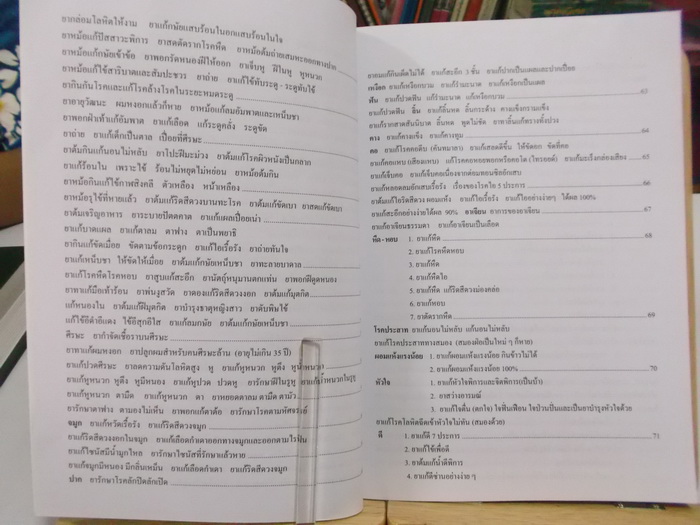 ยากล่อมโลหิตให้งาม ยาแก้กษัยแสบร้อนในอกแสบร้อนในใจ
ยาหม้อแก้ปัสสาวะพิการ ยาสตัดรากโรคหืด ยาหม้อต้มถ่ายเสมหะออกทางปาก
ยาหม้อแก้กษัยเข้าข้อ ยาพอกรัดหนองฝีให้ออก ยาเจ็บหู ฝีในหู หูหนวก
ยาหม้อแก้ไข้สาริบาดและสัมปะชวร ยาถ่าย ยาแก้ไข้ทับระดู - ระดูทับไข้
ยากินกันโรคและแก้โรคล้างโรคในระยะหมดระดู
ยาอายุวัฒนะ ผมหงอกแล้วก็หาย ยาหม้อแก้ลมอัมพาตและเหน็บชา
ยาพอกฝ่าเท้าแก้อัมพาต ยาแก้เลือด แก้ระดูคลั่ง ระดูขัด
ยาถ่าย ยาแก้เด็กเป็นตาล เปื่อยที่ศีรษะ
ยาต้มกินแก้นอนไม่หลับ ยาโปะฝีมะม่วง ยาต้มแก้โรคผิวหนังเป็นกลาก
ยาแก้ร้อนใน เพราะไข้ ร้อนไม่หยุดไม่หย่อน ยาหม้อต้มกิน
ยาหม้อกินแก้ไข้กาฬสิงคลี ตัวเหลือง หน้าเหลือง
ยาหม้อรุไข้ที่หายแล้ว ยาต้มแก้ริดสีดวงบานทะโรค ยาต้มแก้ขัดเบา ยาสตแก้ขัดเบา
ยาต้มเจริญอาหาร ยาระบายปัตตคาด ยาแก้แผลเปื่อยเน่า
ยาแก้บาดแผล ยาแก้ตาลม ตาฟาง ตาเป็นพยาธิ
ยากินแก้ขัดเมื่อย ขัดตามข้อกระดูก ยาแก้ไอเรื้อรัง ยาถ่ายทันใจ
ยาแก้เหน็บชา ให้ขัดให้เมื่อย ยาต้มแก้กษัยเหน็บชา ยาทะลายบาดาล
ยาแก้โรคหืดโรคหอบ ยาสูบแก้สะอึก ยานัตถุ์หนุมานตกแท่น ยาพอกฝีดูดหนอง
ยาทาแก้มือเท้าร้อน ยาพ่นงูสวัด ยาดองแก้ริดสีดวงออก ยาต้มแก้มุตกิด
แก้หนองใน ยาต้มแก้ฝีมุตกิต ยาบำรุงธาตุหญิงสาว ยาดับพิษไข้
แก้ไข้อีดำอีแดง ไข้อีสุกอีใส ยาแก้ลมกษัย ยาต้มแก้กษัยเหน็บชา
ศีรษะ ยากำจัดเชื้อราบนศีรษะ
ยาทาแก้ผมหงอก ยาปลูกผมสำหรับคนศีรษะล้าน (อายุไม่เกิน 35 ปี)
ยาแก้ปวดศีรษะ ยาลดความดันโลหิตสูง หู ยาแก้หูหนวก หูตึง หูน้ำหนวก
ยาแก้หูหนวก หูตึง หูมีหนอง ยาแก้หูปวด ปวดหู ยารักษาฝีในรูหู ยาแก้น้ำหนวกในรูหู
ยาแก้หูหนวก ตามืด ยาแก้หูหนวก ตา ยาหยอดตาลม ตามืด ตามัว
ยารักษาตาฟาง ตามองไม่เห็น ยาพอกแก้ตาต้อ ยารักษาโรคตามหัศจรรย์
จมูก ยาแก้หวัดเรื้อรัง ยาแก้ริดสีดวงจมูก
ยาแก้ริดสีดวงงอกในจมูก ยาแก้เลือดกำเดาออกทางจมูกและออกตามไรฟัน
ยาแก้ไซนัสมีน้ำมูกไหล ยารักษาไซนัสที่รักษาแล้วหาย
ยาแก้จมูกมีหนอง มีกลิ่นเหม็น ยาแก้เลือดกำเดา ยาแก้ริดสีดวงจมูก
ปาก ยารักษาโรคลักปิดลักเปิด
ยาอมแก้กินเผ็ดไม่ได้ ยาแก้สะอึก 3 ชั้น ยาแก้ปากเป็นแผลและปากเปื่อย
เหงือก ยาแก้เหงือกบวม ยาแก้รำมะนาด ยาแก้เหงือกเป็นแผล 63
ฟัน ยาแก้ปวดฟัน แก้รำมะนาด แก้เหงือกบวม
ยาแก้ปวดฟัน ลิ้น ยาแก้ลิ้นหด ลิ้นกระด้าง คางแข็งกรามแข็ง
ยาแก้รากสาดสันนิบาต ลิ้นหด พูดไม่ชัด ยาทาลิ้นแก้ทรางทั้งปวง
คาง ยาแก้คางแข็ง ยาแก้คางทูม 64
คอ ยาแก้โรคคอตีบ (คันทมาลา) ยาแก้เสลดตีขึ้น ให้ขัดอก ขัดที่คอ
ยาแก้คอแหบ (เสียงแหบ) แก้โรคคอหอยพอกหรือคอโต (ไทรอยด์) ยาแก้มะเร็งกล่องเสียง 65
ยาแก้เจ็บคอ ยาแก้เจ็บคอเนื่องจากต่อมทอนซิลอักเสบ
ยาแก้หลอดลมอักเสบเรื้อรัง เรื่องของโรคไอ 5 ประการ 66
ยาต้มแก้ไอริดสีดวง ผอมแห้ง ยาแก้ไอเรื้อรัง ยาแก้ไออย่างง่ายๆ ได้ผล 100%
ยาแก้สะอึกอย่างง่ายได้ผล 90% อาเจียน อาการของอาเจียน 67
ยาแก้อาเจียนธรรมดา ยาแก้อาเจียนเป็นเลือด
หืด - หอบ 1. ยาแก้หืด 68
2. ยาแก้โรคหืดหอบ
3. ยาแก้หืด
4. ยาแก้หืดไอ
5. ยาแก้หืด แก้ริดสีดวงมองคล่อ
6. ยาแก้หอบ
7. ยาตัดรากหืด 69
โรคประสาท ยาแก้นอนไม่หลับ แก้นอนไม่หลับ
ยาแก้โรคประสาททางสมอง (สมองฝ่อเป็นใหม่ ๆ ก็หาย)
ผอมแห้งแรงน้อย 1. ยาแก้ผอมแห้งแรงน้อย กินข้าวไม่ได้
2. ยาแก้ผอมแห้งแรงน้อย 100% 70
หัวใจ 1. ยาแก้หัวใจพิการและจิตพิการ(เป็นบ้า)
2. ยาสร้างอารมณ์
3. ยาแก้ใจสั่น (ตกใจ) ใจฟั่นเฟือน ใจป่วนปั่นและเป็นยาบำรุงหัวใจด้วย
ยาแก้โรคโลหิตฉีดเข้าหัวใจไม่ทัน (สมองด้วย)
ดี 1. ยาแก้ดี 7 ประการ 71
2. ยาแก้ไข้เพื่อดี
3. ยาต้มแก้น้ำดีพิการ
4. ยาแก้ดีซ่านอย่างง่าย ๆ